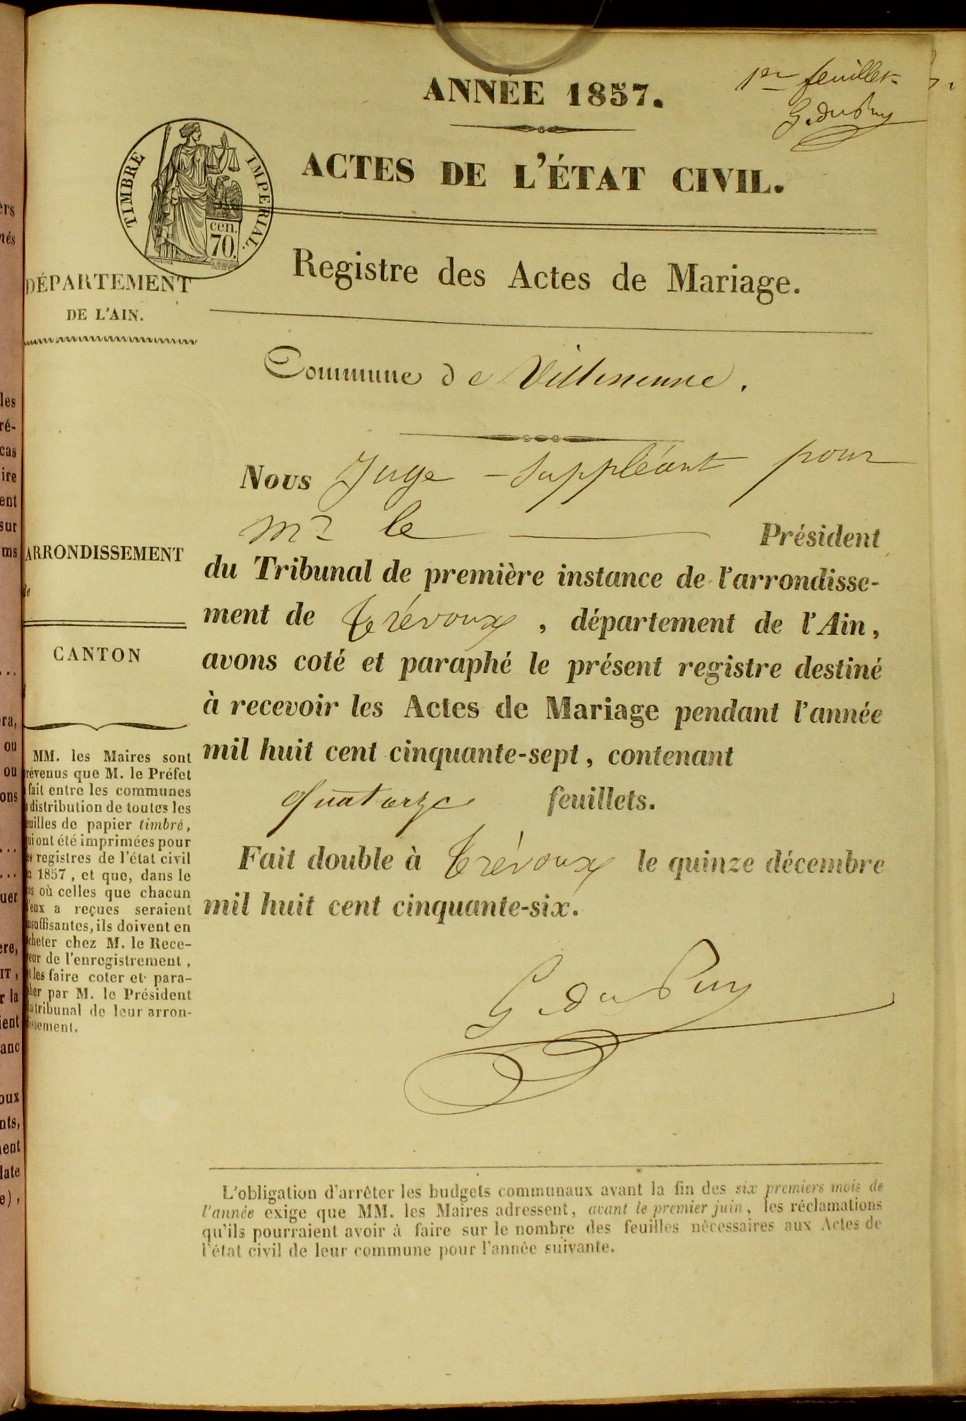 1er feuillet
G. du Puy
ANNÉE 1857.
ACTES DE L'ÉTAT CIVIL.
TIMBRE IMPERIAL.
cen.
70.
Registre des Actes de Mariage.
DÉPARTEMENT
DE L'AIN.
Commune de Villeneuve.
Nous Juge-Suppléant pour
Mr le Président
du Tribunal de première instance de l'arrondisse-
ment de Trévoux, département de l'Ain,
avons coté et paraphé le présent registre destiné
à recevoir les Actes de Mariage pendant l'année
mil huit cent cinquante-sept, contenant
quatorze feuillets.
Fait double à Trévoux le quinze décembre
mil huit cent cinquante-six.
G. du Puy
ARRONDISSEMENT
CANTON
MM. les Maires sont
révenus que M. le Préfet
fait entre les communes
distribution de toutes les
uilles de papier timbré,
ui ont été imprimées pour
es registres de l'état civil
1857, et que, dans le
as où celles que chacun
d'eux a reçues seraient
insuffisantes, ils doivent en
cheter chez M. le Rece-
eur de l'enregistrement,
les faire coter et para-
her par M. le Président
tribunal de leur arron-
issement.
L'obligation d'arrêter les budgets communaux avant la fin des six premiers mois de
l'année exige que MM. les Maires adressent, avant le premier juin, les réclamations
qu'ils pourraient avoir à faire sur le nombre des feuilles nécessaires aux Actes de
l'état civil de leur commune pour l'année suivante.